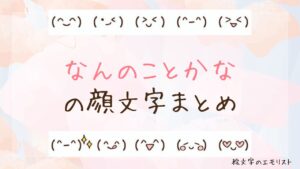 (^‿^) (•ᴗ<) (>ᴗ<) (^–^) (>ᴗ<)
なんのことかな
の顔文字まとめ
(^–^)✨ (^ᴗ^) (^▽^) (◡‿◡) (♡ᴗ♡)
絵文字のエモリスト